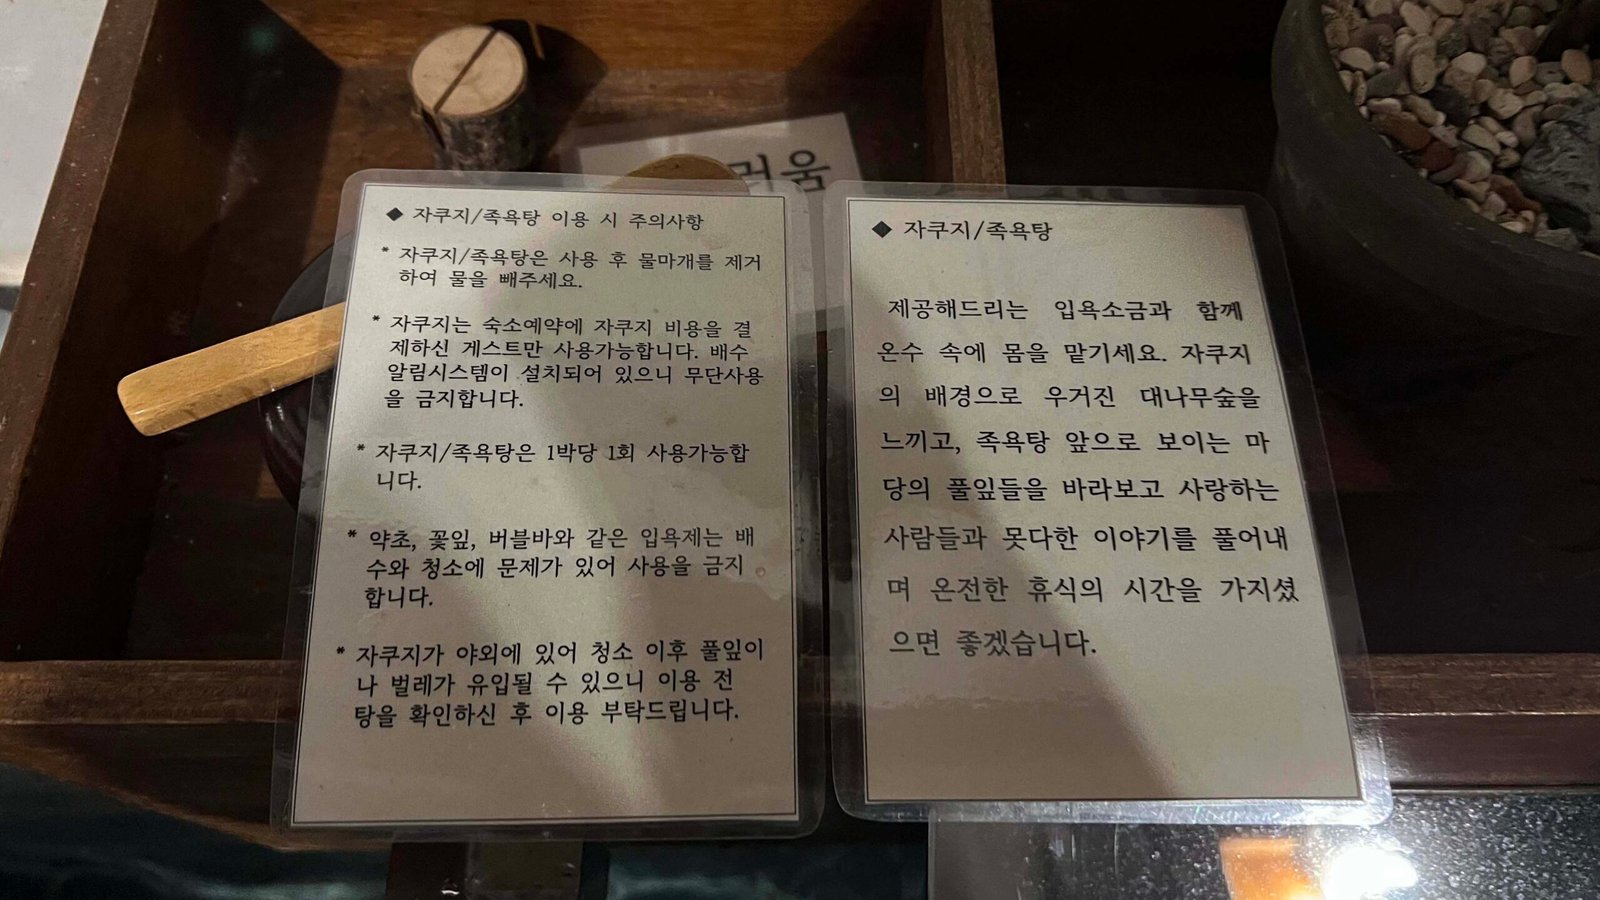 러움
◆ 자쿠지/족욕탕 이용 시 주의사항
* 자쿠지/족욕탕은 사용 후 물마개를 제거
하여 물을 빼주세요.
* 자쿠지는 숙소예약에 자쿠지 비용을 결
제하신 게스트만 사용가능합니다. 배수
알림시스템이 설치되어 있으니 무단사용
을 금지합니다.
* 자쿠지/족욕탕은 1박당 1회 사용가능합
니다.
* 약초, 꽃잎, 버블바와 같은 입욕제는 배
수와 청소에 문제가 있어 사용을 금지
합니다.
* 자쿠지가 야외에 있어 청소 이후 풀잎이
나 벌레가 유입될 수 있으니 이용 전
탕을 확인하신 후 이용 부탁드립니다.
◆ 자쿠지/족욕탕
제공해드리는 입욕소금과 함께
온수 속에 몸을 맡기세요. 자쿠지
의 배경으로 우거진 대나무숲을
느끼고, 족욕탕 앞으로 보이는 마
당의 풀잎들을 바라보고 사랑하는
사람들과 못다한 이야기를 풀어내
며 온전한 휴식의 시간을 가지셨
으면 좋겠습니다.